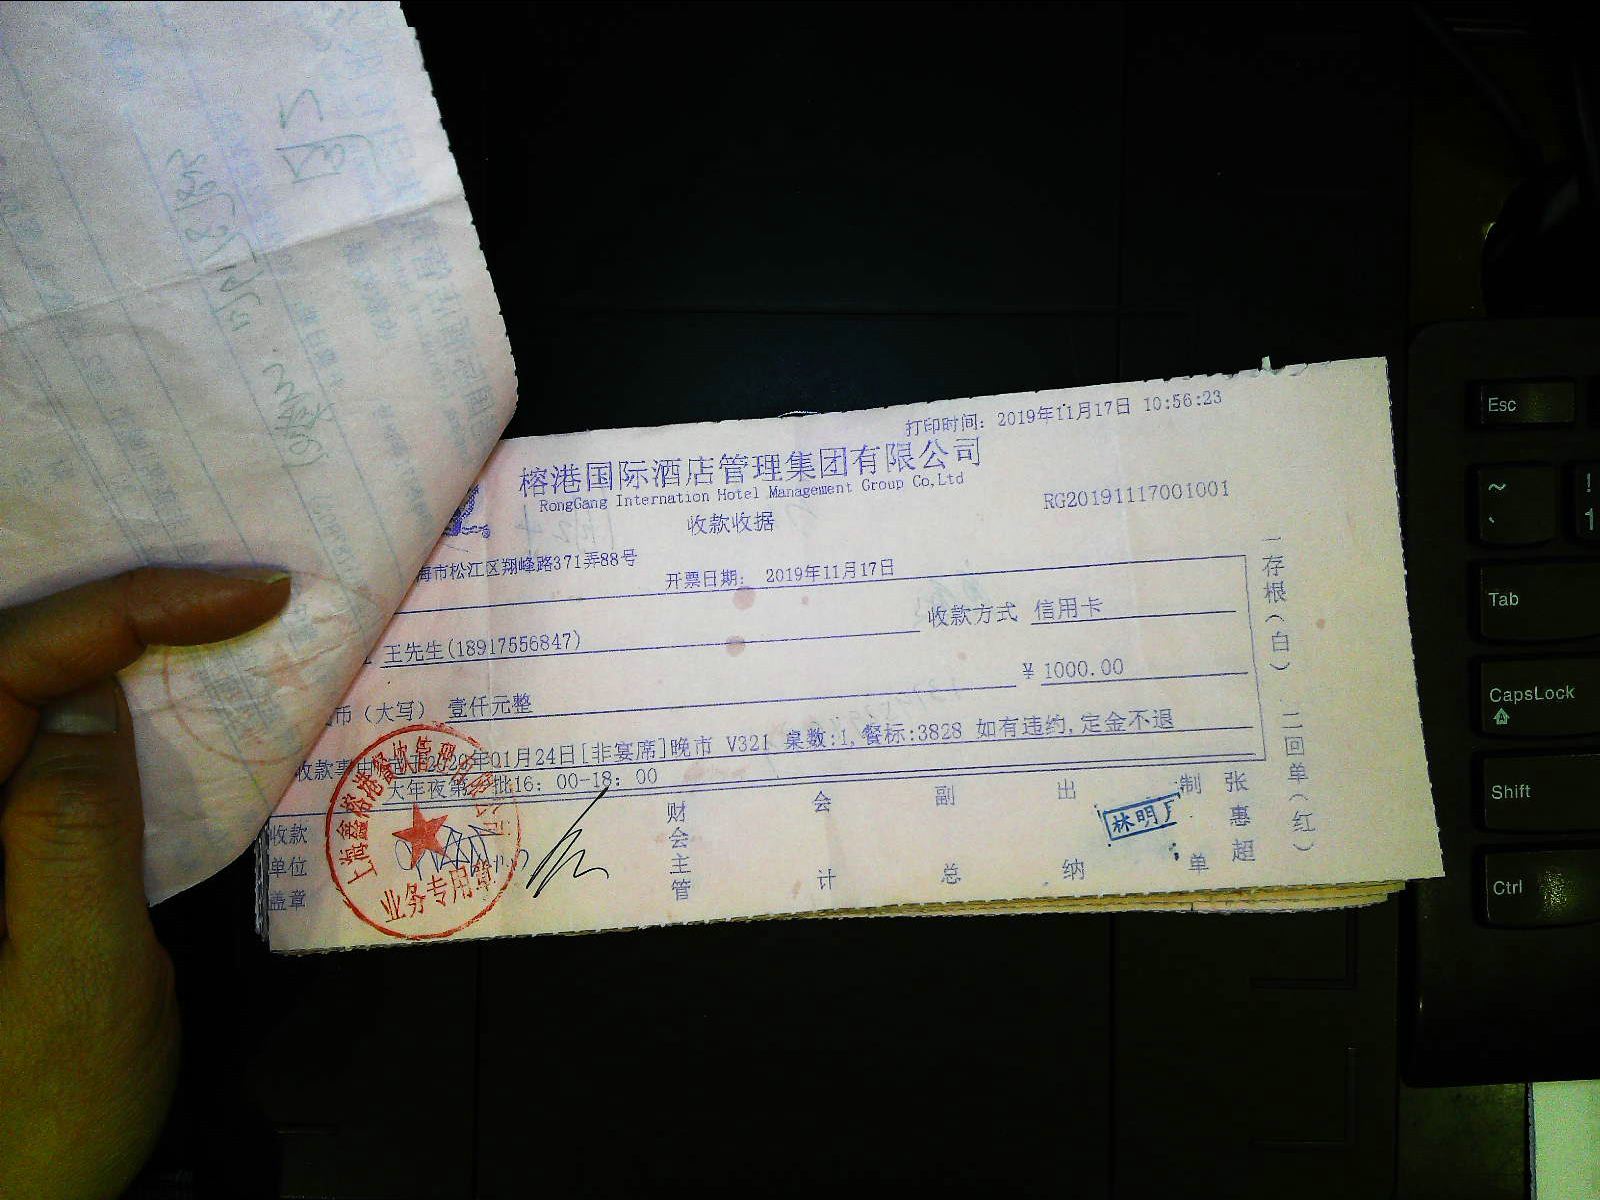 打印时间: 2019年11月17日 10:56:23
榕港国际酒店管理集团有限公司
RongGang Internation Hotel Management Group Co,Ltd
RG20191117001001
收款收据
海市松江区翔峰路371弄88号
开票日期: 2019年11月17日
收款方式 信用卡
王先生(18917556847)
币（大写） 壹仟元整
¥ 1000.00
收款事由 定于2020年01月24日[非宴席]晚市 V321 桌数:1,餐标:3828 如有违约,定金不退
大年夜第一批16: 00-18: 00
收款单位盖章
财会主管
会计
副总
出纳
制单
张惠超
林明
上海鑫榕港餐饮管理有限公司
业务专用章
一存根（白） 二回单（红）
Esc
~
!
1
Tab
CapsLock
Shift
Ctrl